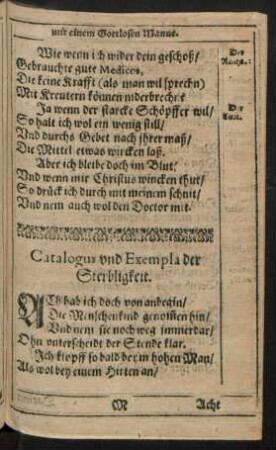 mit einem Gottlosen Manne.
Wie wenn ich wider dein geschoß/
Gebrauchte gute Medicos,
Die keine Krafft (als man wil sprechn)
Mit Kreutern können niderbrechn?
Ja wenn der starcke Schöpffer wil/
So halt ich wol ein wenig still/
Vnd durchs Gebet nach ihrer maß/
Die Mittel etwas wircken laß.
Aber ich bleibe doch im Blut/
Vnd wenn mir Christus wincken thut/
So drück ich durch mit meinem schnit/
Vnd nem auch wol den Doctor mit.
Der
Der
Catalogus vnd Exempla der
Sterbligkeit.
ACh hab ich doch von anbegin/
Die Menschenkind genommen hin/
Vnd nem sie noch weg immerdar/
Ohn unterscheidt der Stende klar.
Ich klopff so bald beym hohen Man/
Als wol bey einem Hirten an/
M
Acht